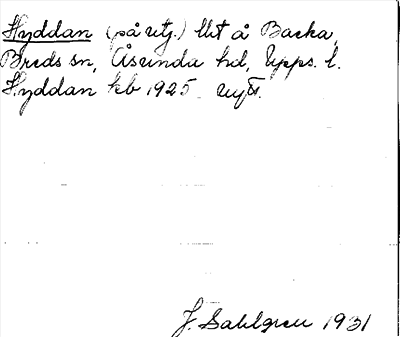 Hyddan (på utj.) lht å Backa,
Breds sn, Åsunda hd, Upps. l.
Hyddan kb 1925.
J. Sahlgren 1931